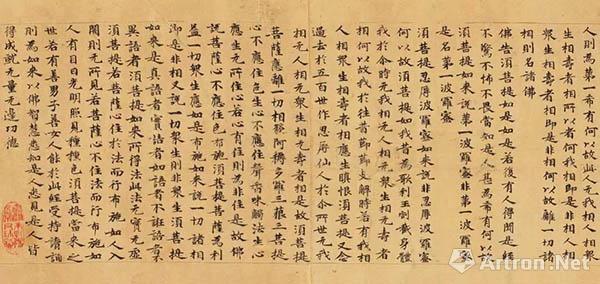 人則為第一希有何以故此人无我相人相眾
生相壽者相所以者何我相即是非相人相眾
生相壽者相即是非相何以故離一切諸
相則名諸佛
佛告須菩提如是如是若復有人得聞是經
不驚不怖不畏當知是人甚為希有何以故
須菩提如來說第一波羅蜜非第一波羅蜜
是名第一波羅蜜
須菩提忍辱波羅蜜如來說非忍辱波羅蜜
何以故須菩提如我昔為歌利王割截身體
我於尒時无我相无人相无眾生相无壽者
相何以故我於往昔節節支解時若有我相
人相眾生相壽者相應生瞋恨須菩提又念
過去於五百世作忍辱仙人於尒所世无我
相无人相无眾生相无壽者相是故須菩提
菩薩應離一切相發阿耨多羅三藐三菩提
心不應住色生心不應住聲香味觸法生心
應生无所住心若心有住則為非住是故佛
說菩薩心不應住色布施須菩提菩薩為利
益一切眾生應如是布施如來說一切諸相
即是非相又說一切眾生則非眾生須菩提
如來是真語者實語者如語者不誑語者不
異語者須菩提如來所得法此法无實无虛
須菩提若菩薩心住於法而行布施如人入
闇則无所見若菩薩心不住法而行布施如
人有目日光明照見種種色須菩提當來之
世若有善男子善女人能於此經受持讀誦
則為如來以佛智慧悉知是人悉見是人皆
得成就无量无邊功德
雅昌艺术网
Artron.Net